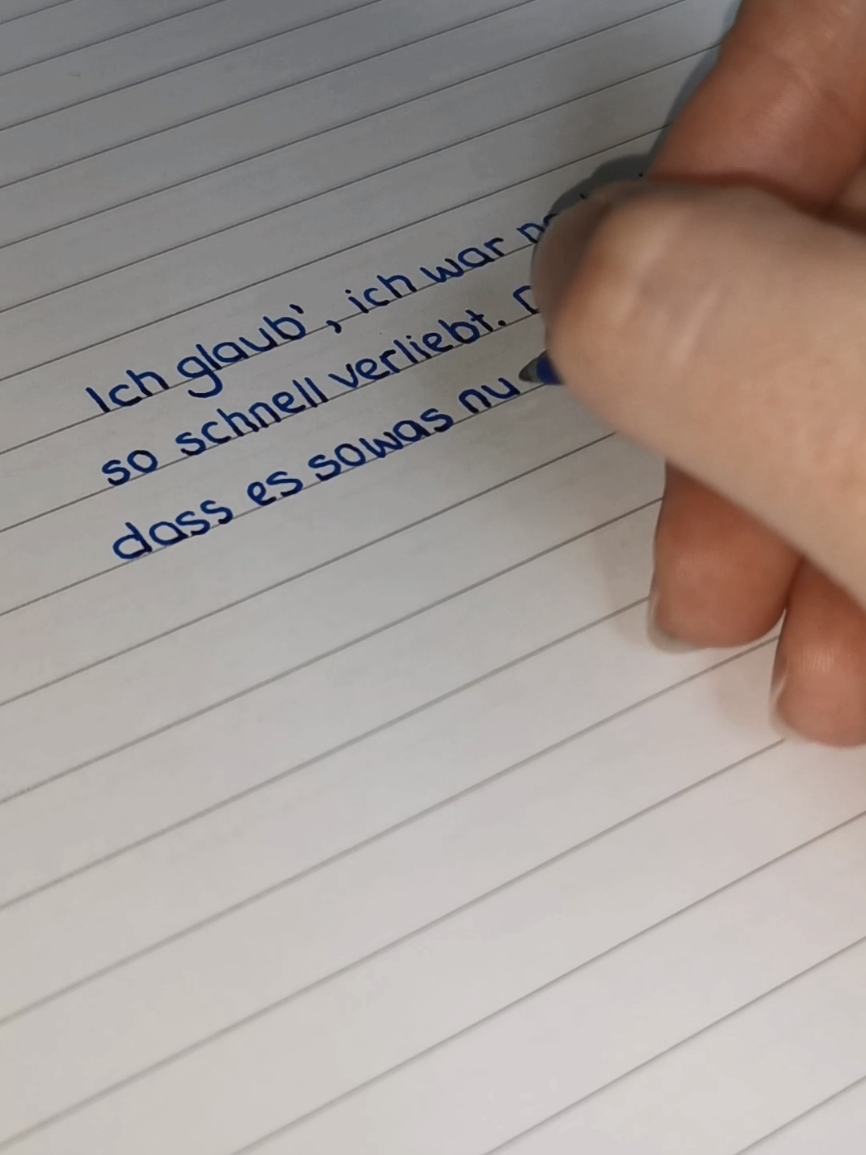 Ich glaub', ich war
so schnell verliebt.
dass es sowas nu